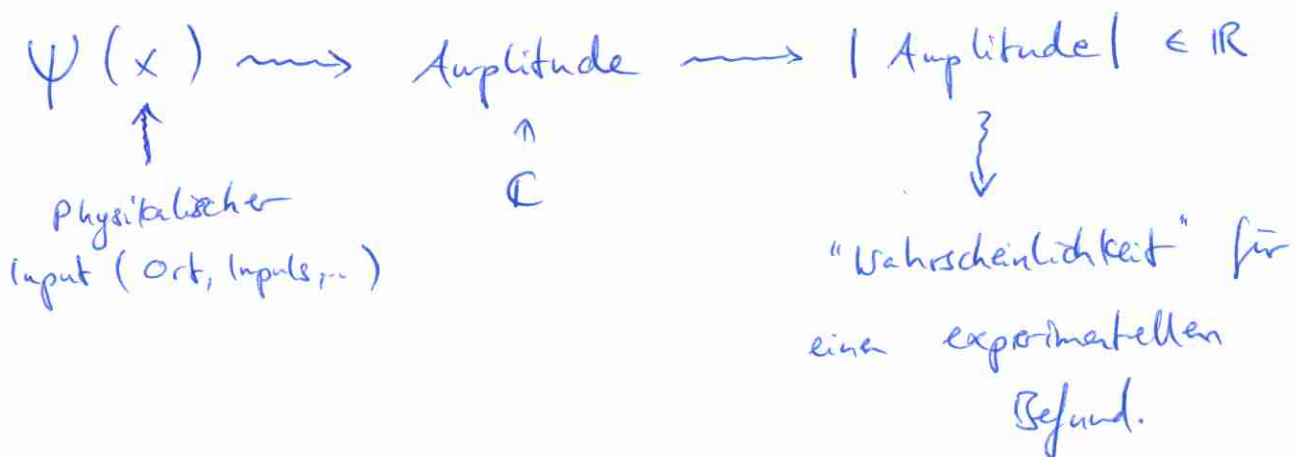 Ψ(x) ⟿ Amplitude ⟿ |Amplitude| ∈ ℝ
↑ ↑ ⇓
Physikalischer ℂ
Input (Ort, Impuls,..)
"Wahrscheinlichkeit" für
einen experimentellen
Befund.